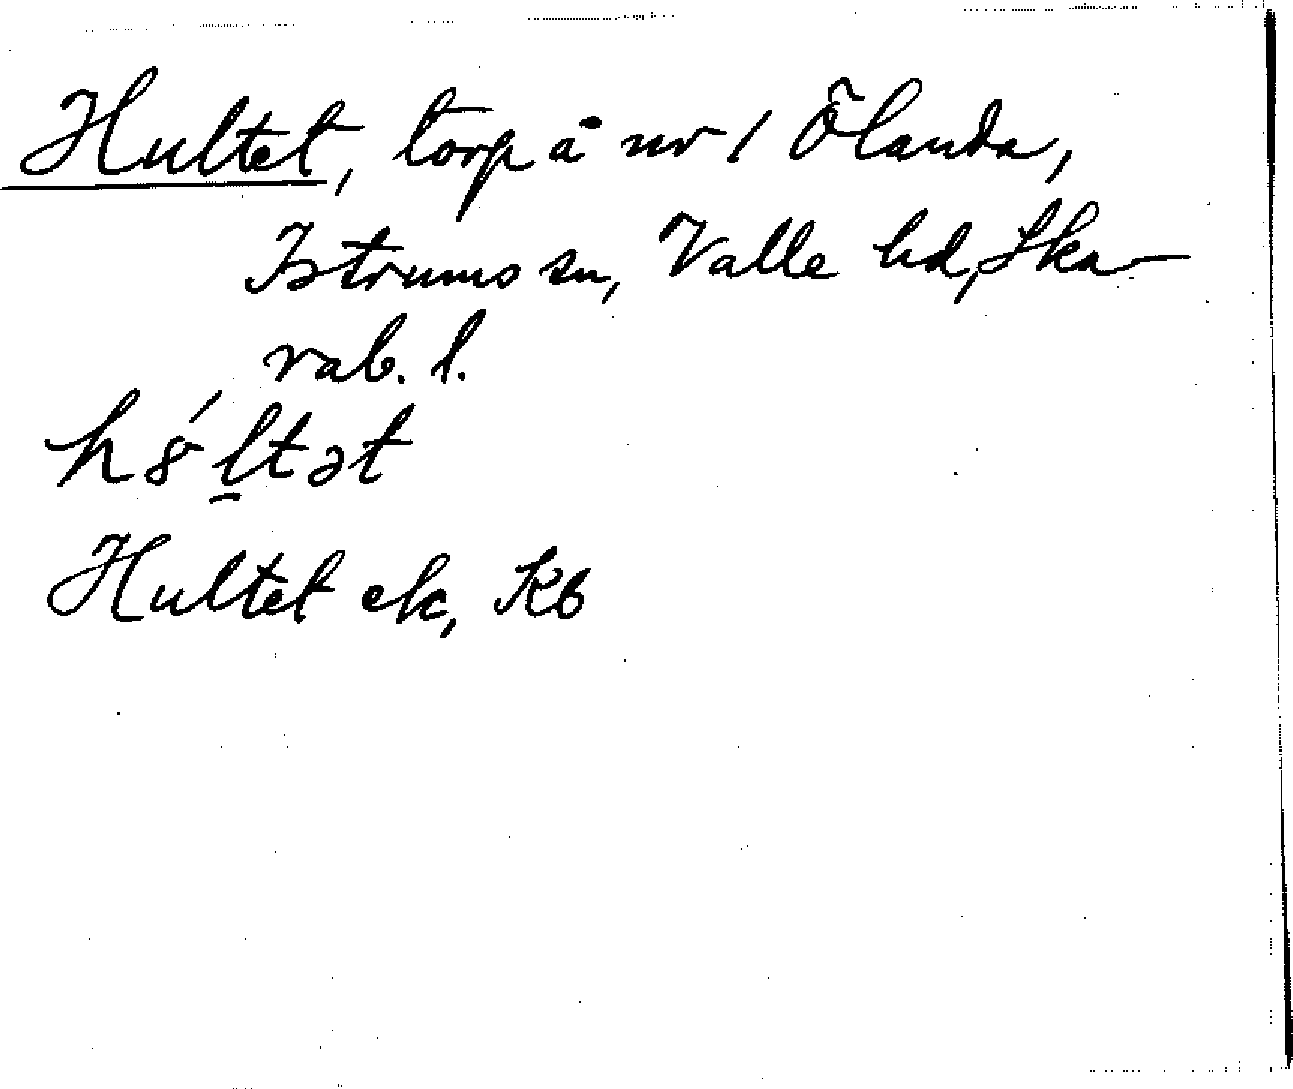 Hultet, torp å nr 1 Ölanda,
Istrums sn, Valle hd, Ska-
rab. l.
h8́l̠tət
Hultet ek, Kb